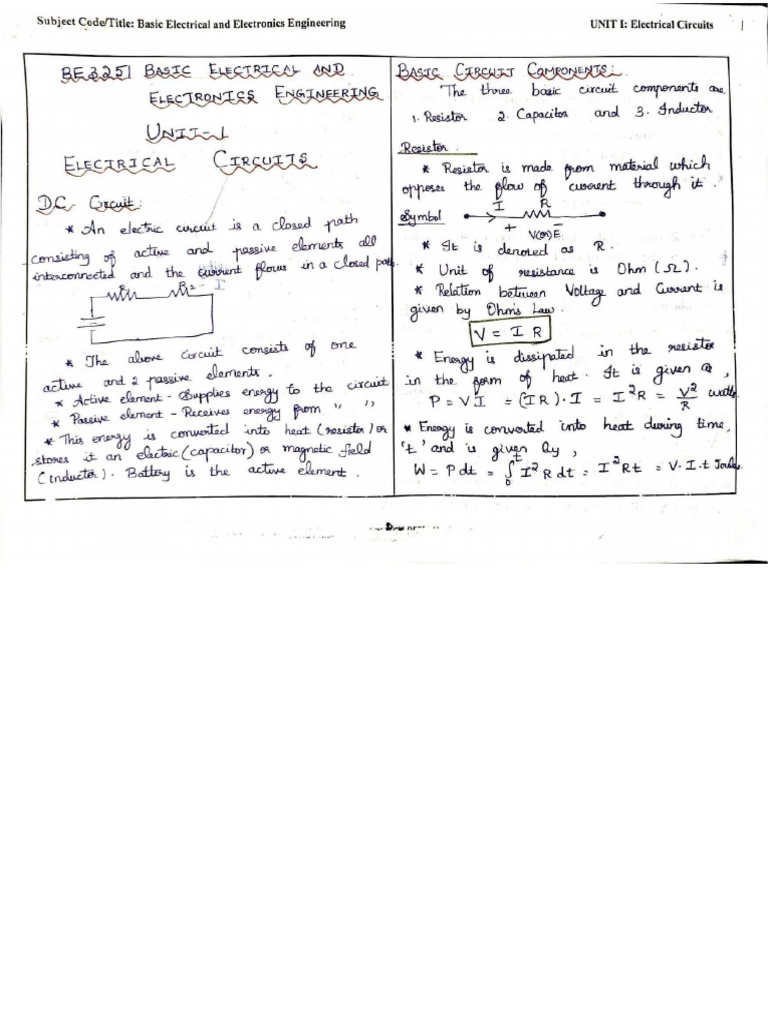 Subject Code/Title: Basic Electrical and Electronics Engineering
UNIT I: Electrical Circuits
1
BE3251 BASIC ELECTRICAL AND
ELECTRONICS ENGINEERING
UNIT-1
ELECTRICAL CIRCUITS
D.C Circuit:
* An electric circuit is a closed path
consisting of active and passive elements all
interconnected and the current flows in a closed path.
R1 R2 I
* The above circuit consists of one
active and 2 passive elements.
* Active element - Supplies energy to the circuit
* Passive element - Receives energy from " "
* This energy is converted into heat (resistor) or
stores it an electric (capacitor) or magnetic field
(inductor). Battery is the active element.
BASIC CIRCUIT COMPONENTS:
The three basic circuit components are
1. Resistor 2. Capacitor and 3. Inductor
Resistor:
* Resistor is made from material which
opposes the flow of current through it.
I R
Symbol
+ V(or)E -
* It is denoted as R.
* Unit of resistance is Ohm (Ω).
* Relation between Voltage and Current is
given by Ohms Law.
V = I R
* Energy is dissipated in the resistor
in the form of heat. It is given as,
P = V I = (I R) . I = I²R = V²/R watts
* Energy is converted into heat during time,
't' and is given by,
W = P dt = ∫₀ᵗ I² R dt = I² R t = V. I. t Joules